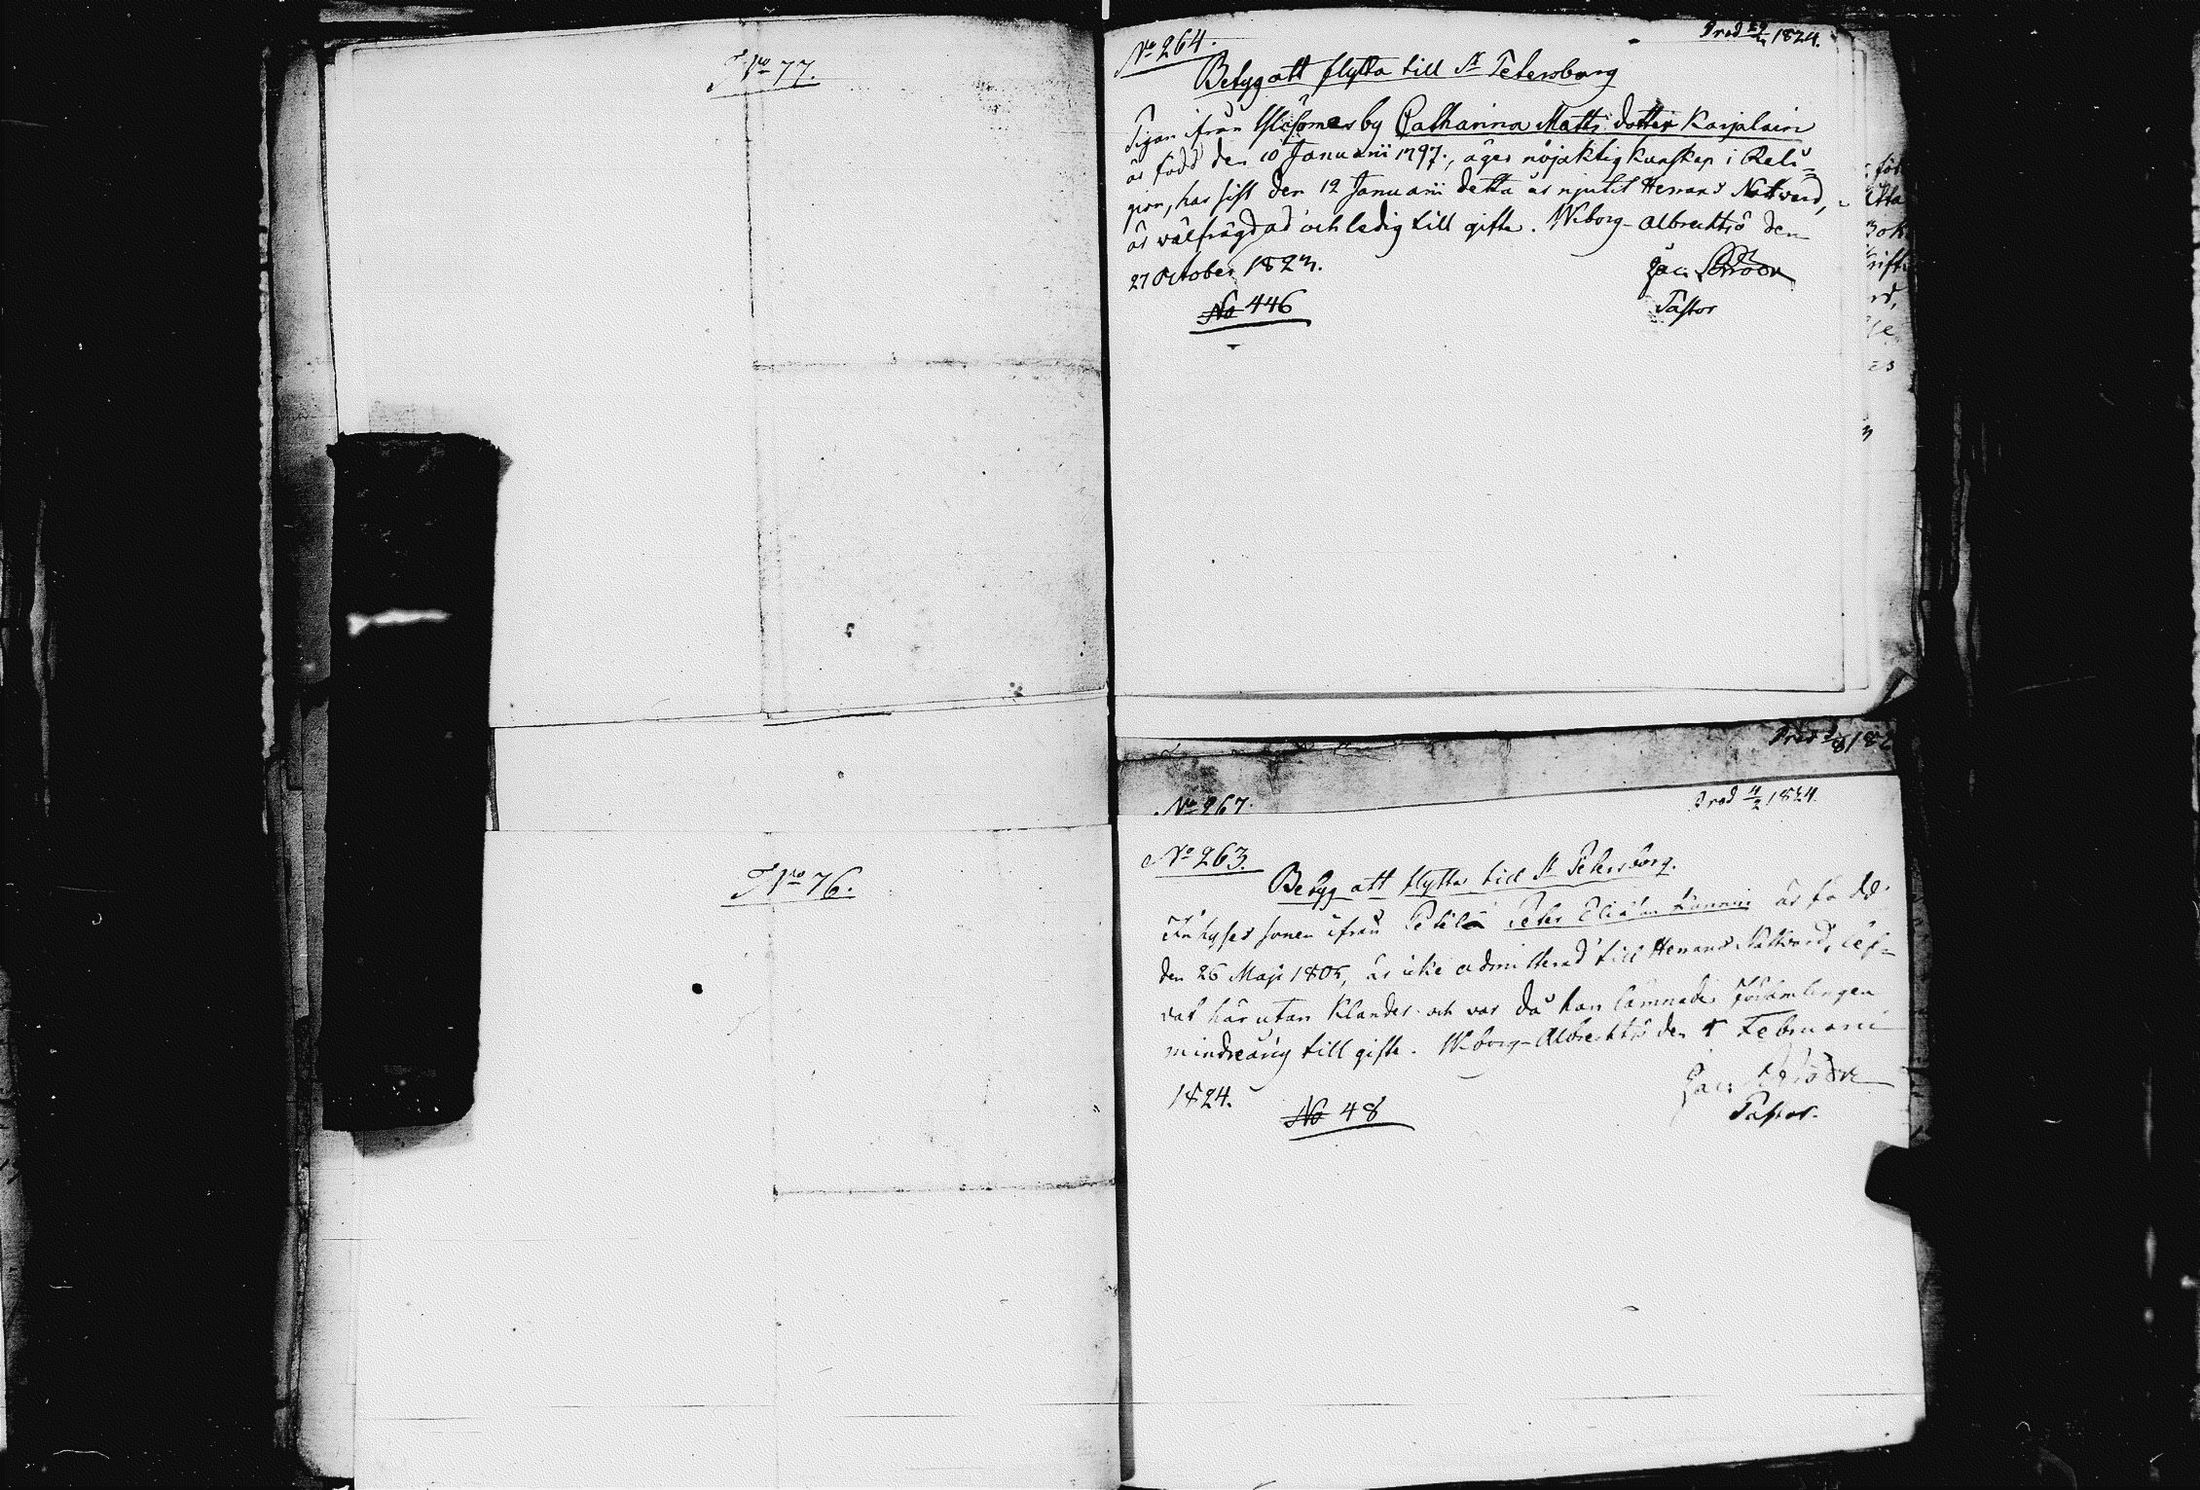 No 77.
No 264.
Prod 1824.
Betyg att flytta till St Petersburg
Pigan ifrån by Catharina Matts dotter Karjalain
är född den 10 Januarii 1797, äger nöjaktig kunskap i Reli=
gion, har sist den 12 Januarii detta år njutit Herrans Nattvard,
är välfrägdad och ledig till gifte. Wiborg-Albrechtsö den
27 October 1823.
Jac: Schröder
Pastor
No 446
Prod
No 267.
Prod 11/2 1824.
No 76.
No 263.
Betyg att flytta till St Petersburg.
Inhyses sonen ifrån Peter är född
den 26 Maji 1805, är icke admitterad till Herrans Nattvard, lef=
vat här utan klander och var då han lämnade församlingen
mindreårig till gifte. Wiborg-Albrechtsö den Februarii
1824.
Jac: Schröder
Pastor.
No 48